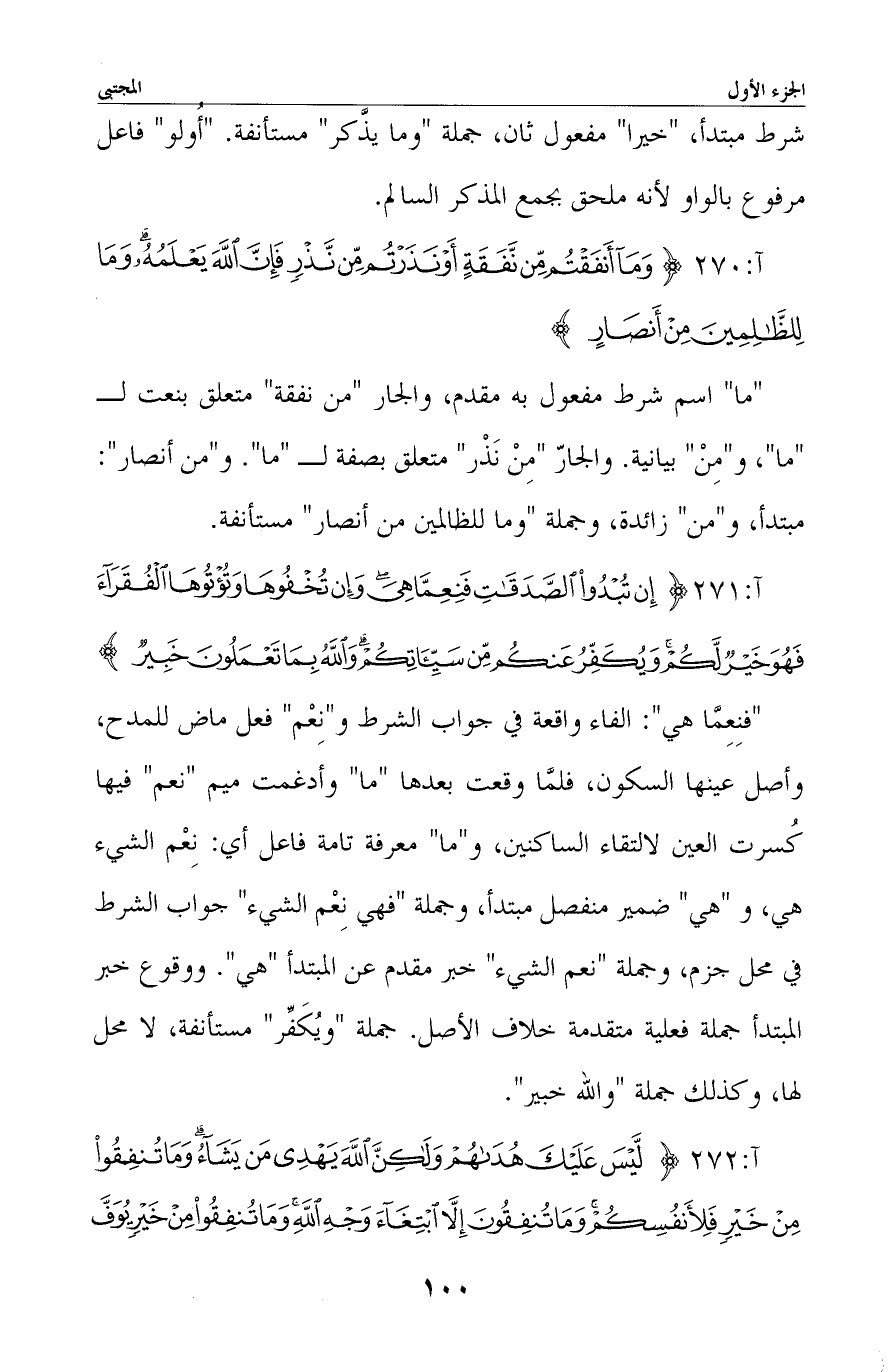 الجزء الأول
المجتبى
شرط مبتدأ، "خيرا" مفعول ثان، جملة "وما يذَّكر" مستأنفة. "أُولو" فاعل
مرفوع بالواو لأنه ملحق بجمع المذكر السالم.
آ: ٢٧٠ ﴿ وَمَآ أَنفَقْتُم مِّن نَّفَقَةٍ أَوْ نَذَرْتُم مِّن نَّذْرٍ فَإِنَّ ٱللَّهَ يَعْلَمُهُۥ ۗ وَمَا
لِلظَّٰلِمِينَ مِنْ أَنصَارٍ ﴾
"ما" اسم شرط مفعول به مقدم، والجار "من نفقة" متعلق بنعت لـــ
"ما"، و"مِنْ" بيانية. والجارّ "مِنْ نَذْر" متعلق بصفة لـــ "ما". و"من أنصار":
مبتدأ، و"من" زائدة، وجملة "وما للظالمين من أنصار" مستأنفة.
آ: ٢٧١ ﴿ إِن تُبْدُوا۟ ٱلصَّدَقَٰتِ فَنِعِمَّا هِىَ ۖ وَإِن تُخْفُوهَا وَتُؤْتُوهَا ٱلْفُقَرَآءَ
فَهُوَ خَيْرٌ لَّكُمْ ۚ وَيُكَفِّرُ عَنكُم مِّن سَيِّـَٔاتِكُمْ ۗ وَٱللَّهُ بِمَا تَعْمَلُونَ خَبِيرٌ ﴾
"فنِعِمَّا هي": الفاء واقعة في جواب الشرط و"نِعْم" فعل ماض للمدح،
وأصل عينها السكون، فلمَّا وقعت بعدها "ما" وأدغمت ميم "نعم" فيها
كُسرت العين لالتقاء الساكنين، و"ما" معرفة تامة فاعل أي: نِعْم الشيء
هي، و "هي" ضمير منفصل مبتدأ، وجملة "فهي نِعْم الشيء" جواب الشرط
في محل جزم، وجملة "نعم الشيء" خبر مقدم عن المبتدأ "هي". ووقوع خبر
المبتدأ جملة فعلية متقدمة خلاف الأصل. جملة "ويُكَفِّر" مستأنفة، لا محل
لها، وكذلك جملة "والله خبير".
آ: ٢٧٢ ﴿ لَّيْسَ عَلَيْكَ هُدَىٰهُمْ وَلَٰكِنَّ ٱللَّهَ يَهْدِى مَن يَشَآءُ ۗ وَمَا تُنفِقُوا۟
مِنْ خَيْرٍ فَلِأَنفُسِكُمْ ۚ وَمَا تُنفِقُونَ إِلَّا ٱبْتِغَآءَ وَجْهِ ٱللَّهِ ۚ وَمَا تُنفِقُوا۟ مِنْ خَيْرٍ يُوَفَّ
١٠٠